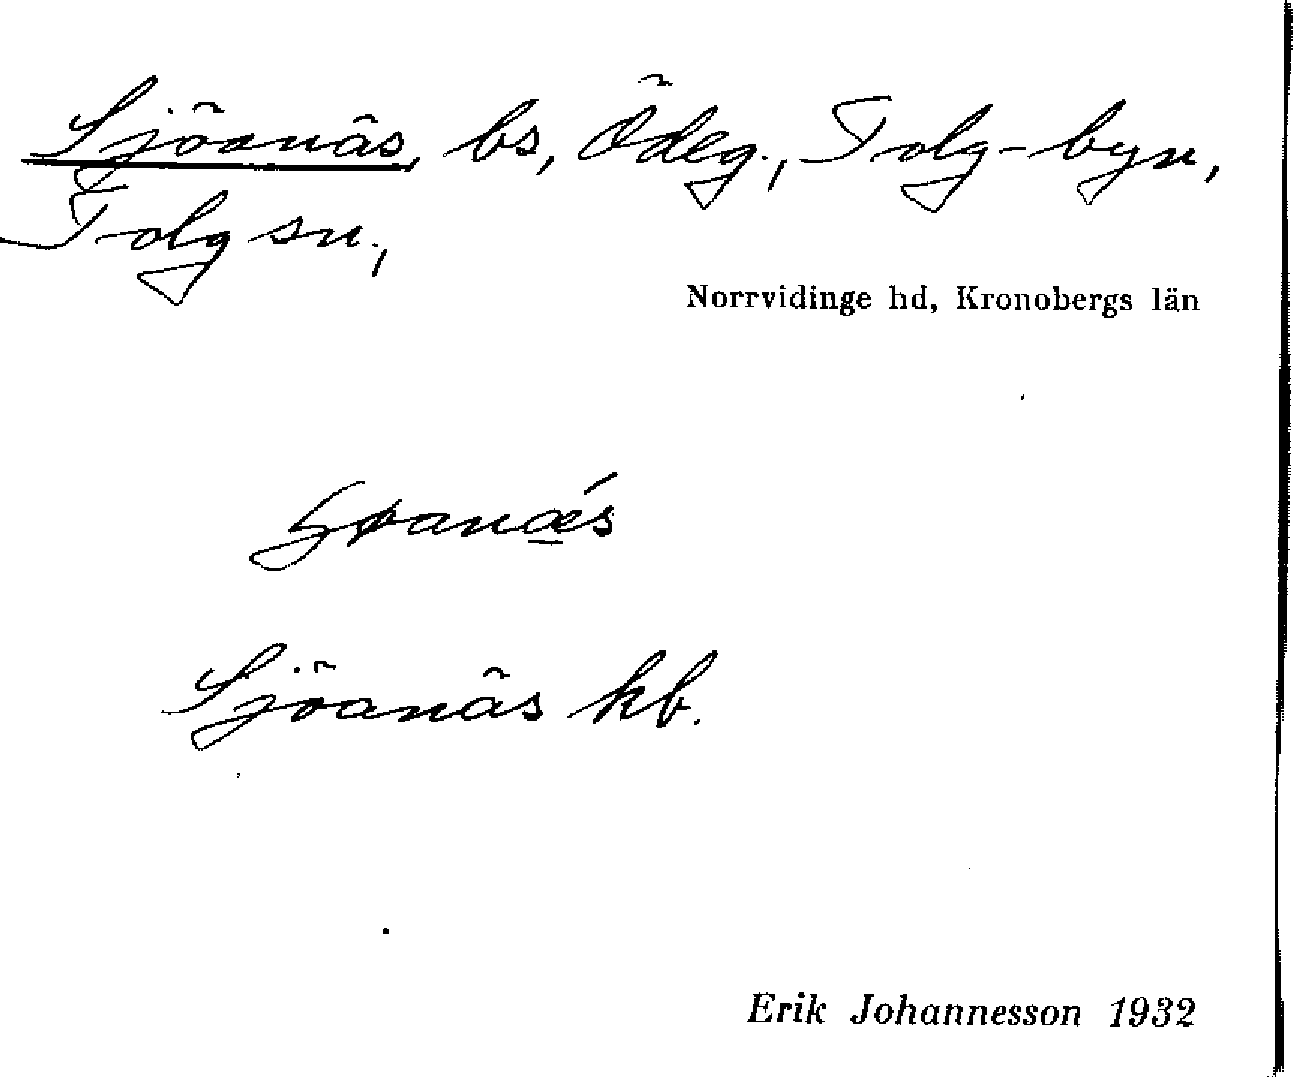 Sjöanäs, bs, Ödeg., Tolg-byn,
Tolg sn.,
Norrvidinge hd, Kronobergs län
Sjöanäs kb.
Erik Johannesson 1932